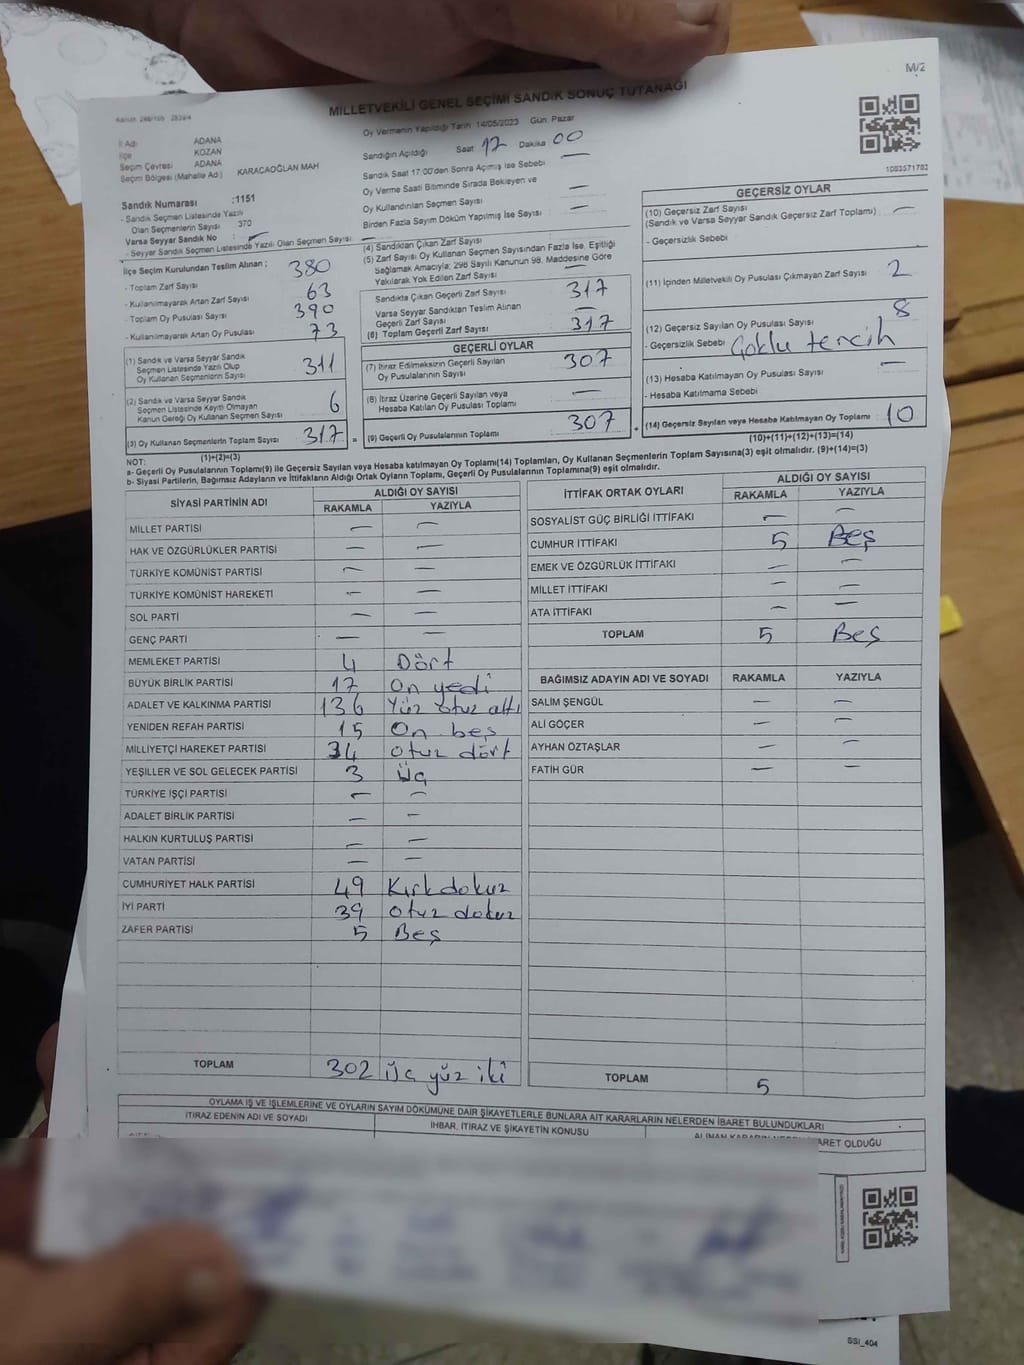 M/2
MİLLETVEKİLİ GENEL SEÇİMİ SANDIK SONUÇ TUTANAĞI
İl Adı ADANA
İlçe KOZAN
Seçim Çevresi ADANA
Seçim Bölgesi (Mahalle Adı) KARACAOĞLAN MAH
Sandık Numarası :1151
- Sandık Seçmen Listesinde Yazılı
Olan Seçmenlerin Sayısı 370
Varsa Seyyar Sandık No —
- Seyyar Sandık Seçmen Listesinde Yazılı Olan Seçmen Sayısı —
İlçe Seçim Kurulundan Teslim Alınan ;
- Toplam Zarf Sayısı 380
- Kullanılmayarak Artan Zarf Sayısı 63
Toplam Oy Pusulası Sayısı 390
- Kullanılmayarak Artan Oy Pusulası 73
(1) Sandık ve Varsa Seyyar Sandık
Seçmen Listesinde Yazılı Olup
Oy Kullanan Seçmenlerin Sayısı 311
(2) Sandık ve Varsa Seyyar Sandık
Seçmen Listesinde Kayıtlı Olmayan
Kanun Gereği Oy Kullanan Seçmen Sayısı 6
(3) Oy Kullanan Seçmenlerin Toplam Sayısı 317 =
(1)+(2)=(3)
Oy Vermenin Yapıldığı Tarih 14/05/2023 Gün. Pazar
Sandığın Açıldığı Saat 17 Dakika 00
Sandık Saat 17:00'den Sonra Açılmış İse Sebebi —
Oy Verme Saati Bitiminde Sırada Bekleyen ve
Oy Kullandırılan Seçmen Sayısı —
Birden Fazla Sayım Döküm Yapılmış İse Sayısı —
(4) Sandıktan Çıkan Zarf Sayısı
(5) Zarf Sayısı Oy Kullanan Seçmen Sayısından Fazla İse, Eşitliği
Sağlamak Amacıyla; 298 Sayılı Kanunun 98. Maddesine Göre
Yakılarak Yok Edilen Zarf Sayısı
Sandıkta Çıkan Geçerli Zarf Sayısı 317
Varsa Seyyar Sandıktan Teslim Alınan
Geçerli Zarf Sayısı —
(6) Toplam Geçerli Zarf Sayısı 317
GEÇERLİ OYLAR
(7) İtiraz Edilmeksizin Geçerli Sayılan
Oy Pusulalarının Sayısı 307
(8) İtiraz Üzerine Geçerli Sayılan veya
Hesaba Katılan Oy Pusulası Toplamı —
(9) Geçerli Oy Pusulalarının Toplamı 307 +
1083571783
GEÇERSİZ OYLAR
(10) Geçersiz Zarf Sayısı
(Sandık ve Varsa Seyyar Sandık Geçersiz Zarf Toplamı) —
- Geçersizlik Sebebi
(11) İçinden Milletvekili Oy Pusulası Çıkmayan Zarf Sayısı 2
(12) Geçersiz Sayılan Oy Pusulası Sayısı 8
- Geçersizlik Sebebi Çoklu tercih
(13) Hesaba Katılmayan Oy Pusulası Sayısı —
- Hesaba Katılmama Sebebi
(14) Geçersiz Sayılan veya Hesaba Katılmayan Oy Toplamı 10
(10)+(11)+(12)+(13)=(14)
NOT:
a- Geçerli Oy Pusulalarının Toplamı(9) ile Geçersiz Sayılan veya Hesaba katılmayan Oy Toplamı(14) Toplamları, Oy Kullanan Seçmenlerin Toplam Sayısına(3) eşit olmalıdır. (9)+(14)=(3)
b- Siyasi Partilerin, Bağımsız Adayların ve İttifakların Aldığı Ortak Oyların Toplamı, Geçerli Oy Pusulalarının Toplamına(9) eşit olmalıdır.
SİYASİ PARTİNİN ADI ALDIĞI OY SAYISI
RAKAMLA YAZIYLA
MİLLET PARTİSİ — —
HAK VE ÖZGÜRLÜKLER PARTİSİ — —
TÜRKİYE KOMÜNİST PARTİSİ — —
TÜRKİYE KOMÜNİST HAREKETİ — —
SOL PARTİ — —
GENÇ PARTİ — —
MEMLEKET PARTİSİ 4 Dört
BÜYÜK BİRLİK PARTİSİ 17 On yedi
ADALET VE KALKINMA PARTİSİ 136 Yüz otuz altı
YENİDEN REFAH PARTİSİ 15 On beş
MİLLİYETÇİ HAREKET PARTİSİ 34 otuz dört
YEŞİLLER VE SOL GELECEK PARTİSİ 3 Üç
TÜRKİYE İŞÇİ PARTİSİ — —
ADALET BİRLİK PARTİSİ — —
HALKIN KURTULUŞ PARTİSİ — —
VATAN PARTİSİ — —
CUMHURİYET HALK PARTİSİ 49 Kırk dokuz
İYİ PARTİ 39 otuz dokuz
ZAFER PARTİSİ 5 Beş
TOPLAM 302 üç yüz iki
İTTİFAK ORTAK OYLARI ALDIĞI OY SAYISI
RAKAMLA YAZIYLA
SOSYALİST GÜÇ BİRLİĞİ İTTİFAKI — —
CUMHUR İTTİFAKI 5 Beş
EMEK VE ÖZGÜRLÜK İTTİFAKI — —
MİLLET İTTİFAKI — —
ATA İTTİFAKI — —
TOPLAM 5 Beş
BAĞIMSIZ ADAYIN ADI VE SOYADI RAKAMLA YAZIYLA
SALİM ŞENGÜL — —
ALİ GÖÇER — —
AYHAN ÖZTAŞLAR — —
FATİH GÜR — —
TOPLAM 5
OYLAMA İŞ VE İŞLEMLERİNE VE OYLARIN SAYIM DÖKÜMÜNE DAİR ŞİKAYETLERLE BUNLARA AİT KARARLARIN NELERDEN İBARET BULUNDUKLARI
İTİRAZ EDENİN ADI VE SOYADI İHBAR, İTİRAZ VE ŞİKAYETİN KONUSU
SSİ_404